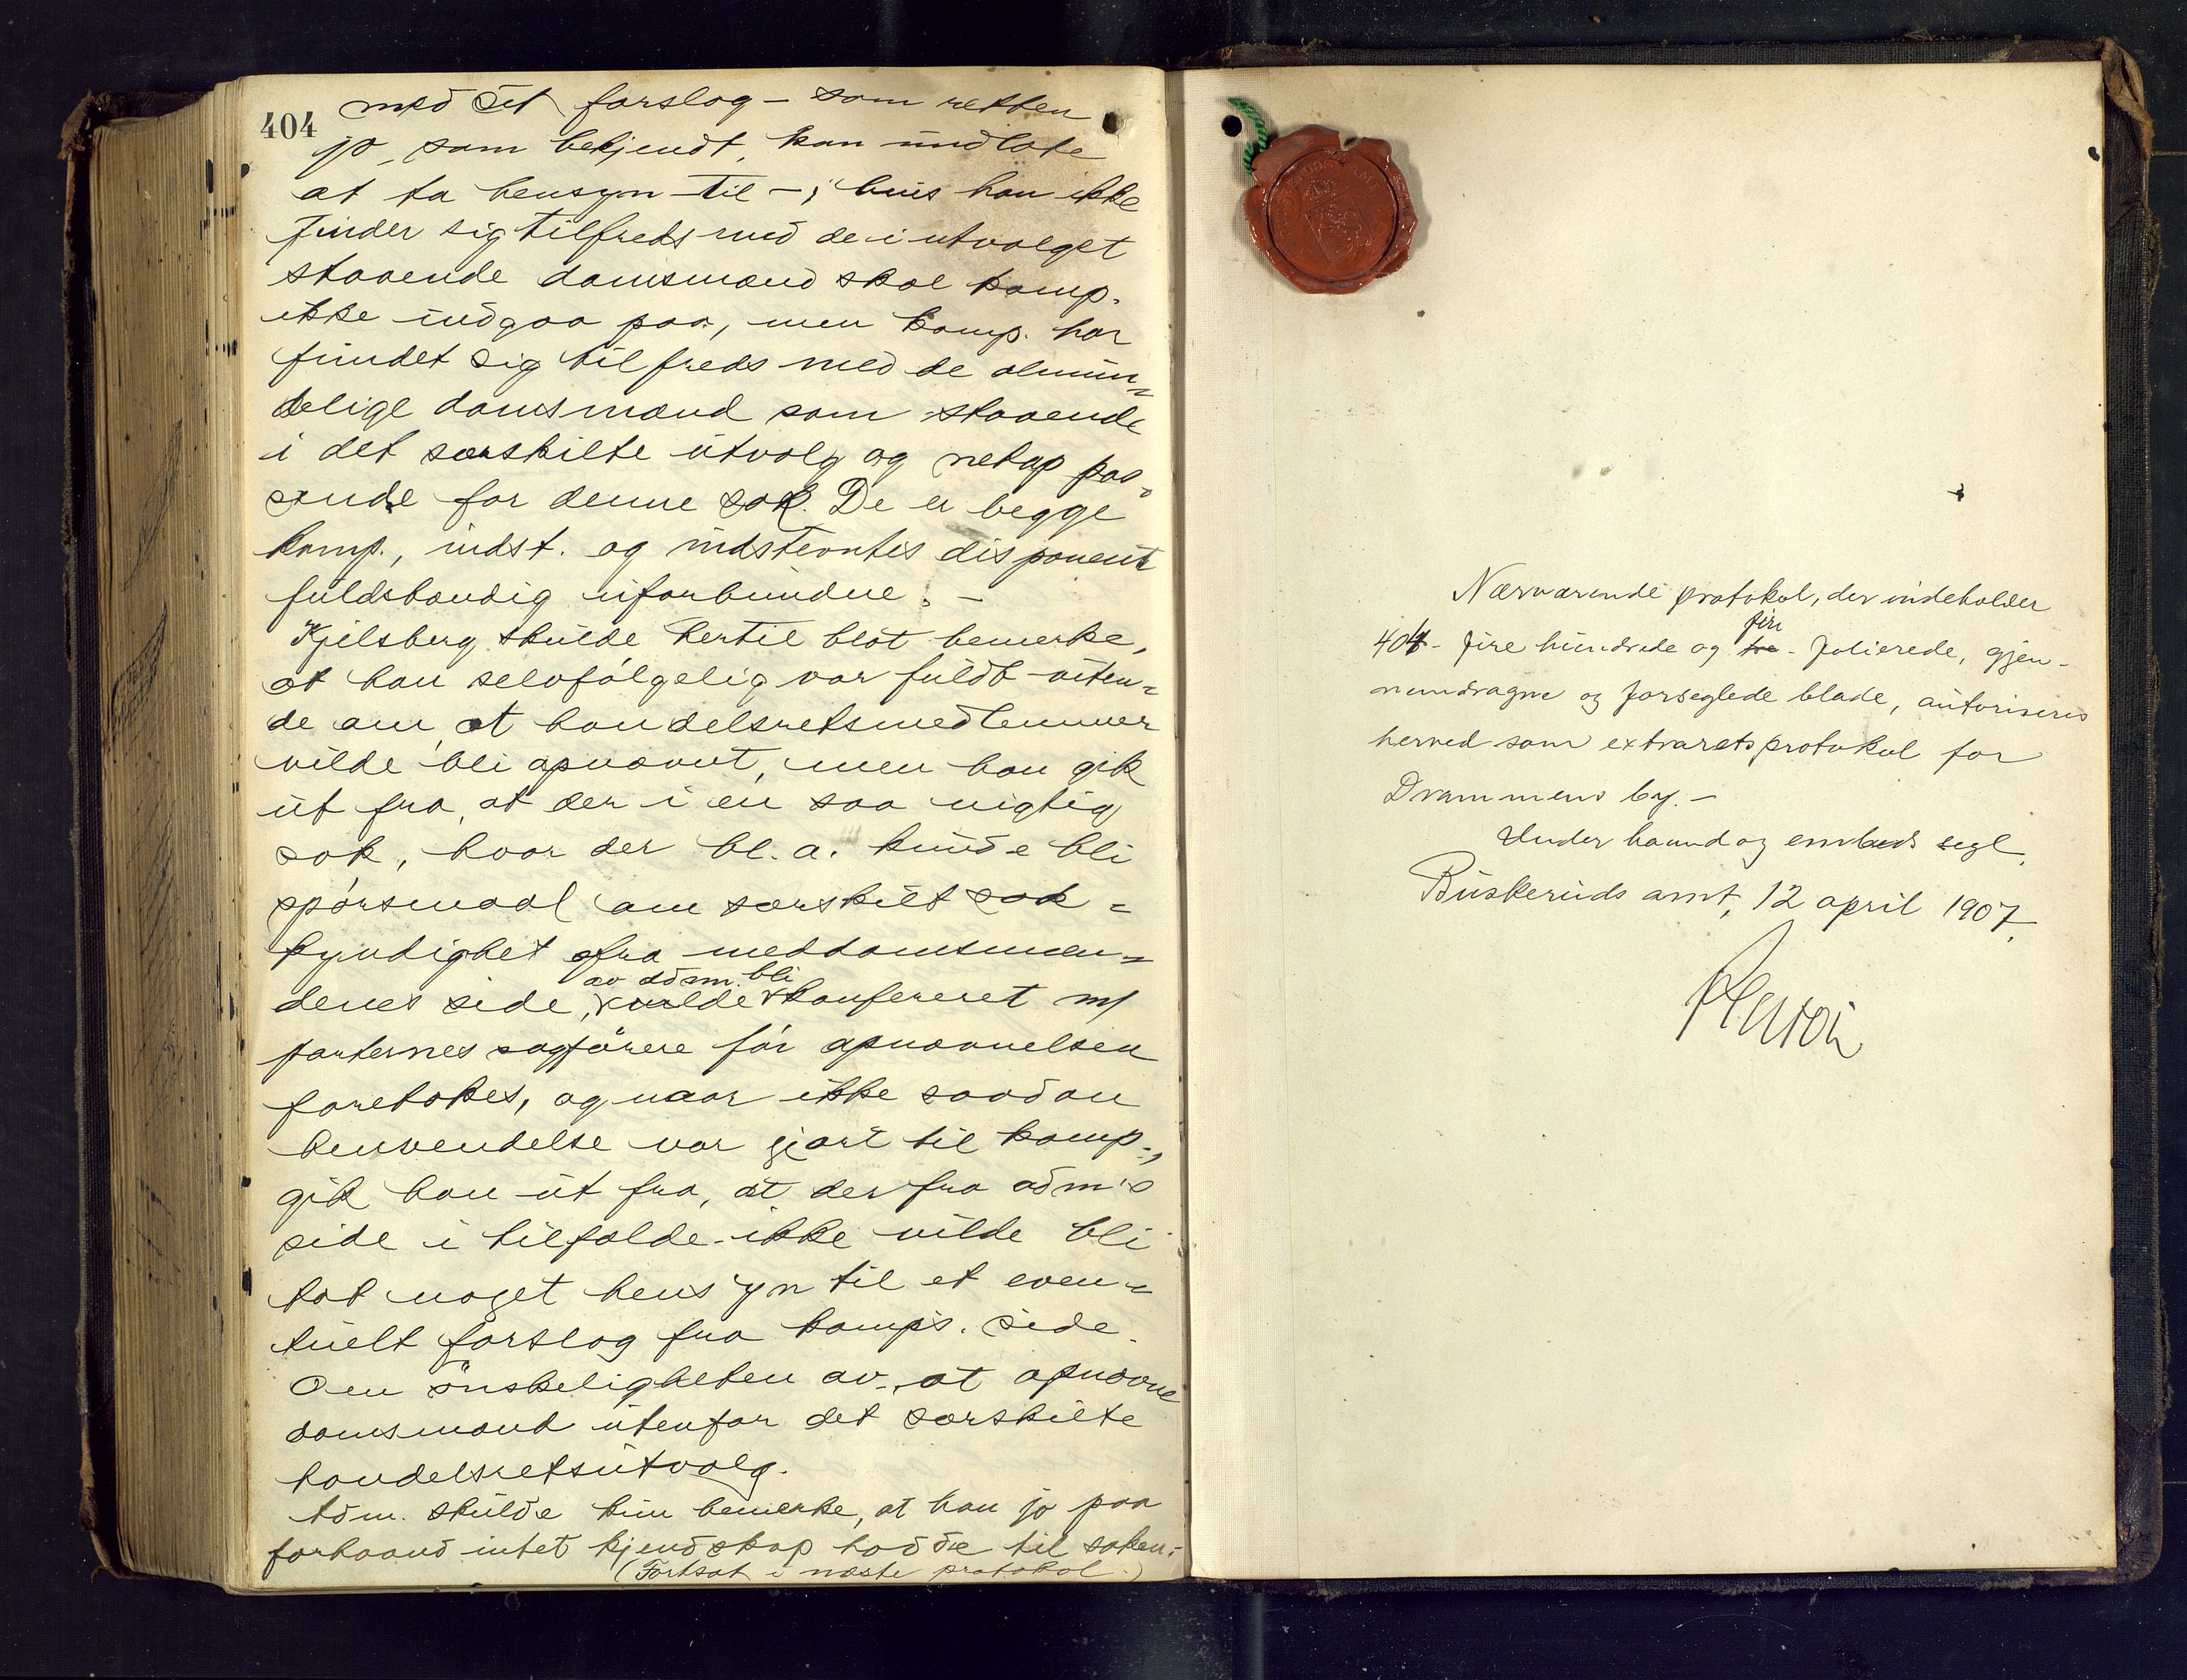 404
med set forslag – som retten
jo, som bekjendt, kan undlate
at ta hensyn til –; hvis han ikke
finder sig tilfreds med de i utvalget
staaende domsmænd skal komp.
ikke indgaa paa, men komp. har
fundet sig tilfreds med de almin=
delige domsmænd som staaende
i det særskilte utvalg og netop pas=
sende for denne sak. De er begge
komp., indst. og indstevntes disponent
fuldstændig uforbundne. –
Kjelsberg skulde hertil blot bemerke,
at han selvfølgelig var fuldt viten=
de om, at handelsretsmedlemmer
vilde bli opnævnt, men han gik
ut fra, at der i en saa vigtig
sak, hvor der bl. a. kunde bli
spørsmaal om særskilt sak=
kyndighet fra meddomsmæn=
av adm. bli
denes side, vilde konfereret m/
parternes sagførere før opnævnelsen
foretokes, og naar ikke saadan
henvendelse var gjort til komp.,
gik han ut fra, at der fra adm's
side i tilfælde ikke vilde bli
tat noget hensyn til et even=
tuelt forslag fra komp's. side.
Om ønskeligheten av at opnævne
domsmænd utenfor det særskilte
handelsretsutvalg.
Adm. skulde kun bemerke, at han jo paa
forhaand intet kjendskap hadde til saken.
(Fortsat i næste protokol.)
Nærværende protokol, der indeholder
fire
404 – fire hundrede og tre – folierede, gjen-
nemdragne og forseglede blade, autoriseres
herved som extraretsprotokol for
Drammens by. –
Under haand og embeds segl.
Buskeruds amt, 12 april 1907.